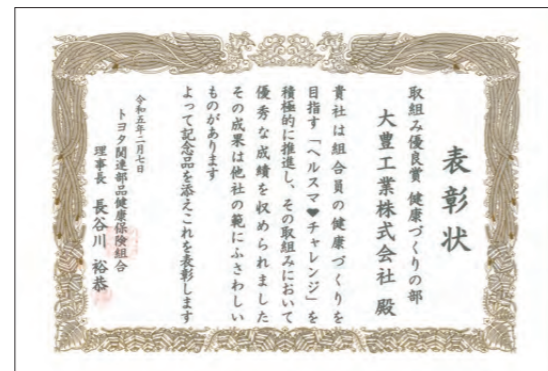 表彰状
取組み優良賞 健康づくりの部
大豊工業株式会社 殿
貴社は組合員の健康づくりを
目指す「ヘルスマ♥チャレンジ」を
積極的に推進し、その取組みにおいて
優秀な成績を収められました
その成果は他社の範にふさわしい
ものがあります
よって記念品を添えこれを表彰します
令和五年二月七日
トヨタ関連部品健康保険組合
理事長 長谷川 裕恭